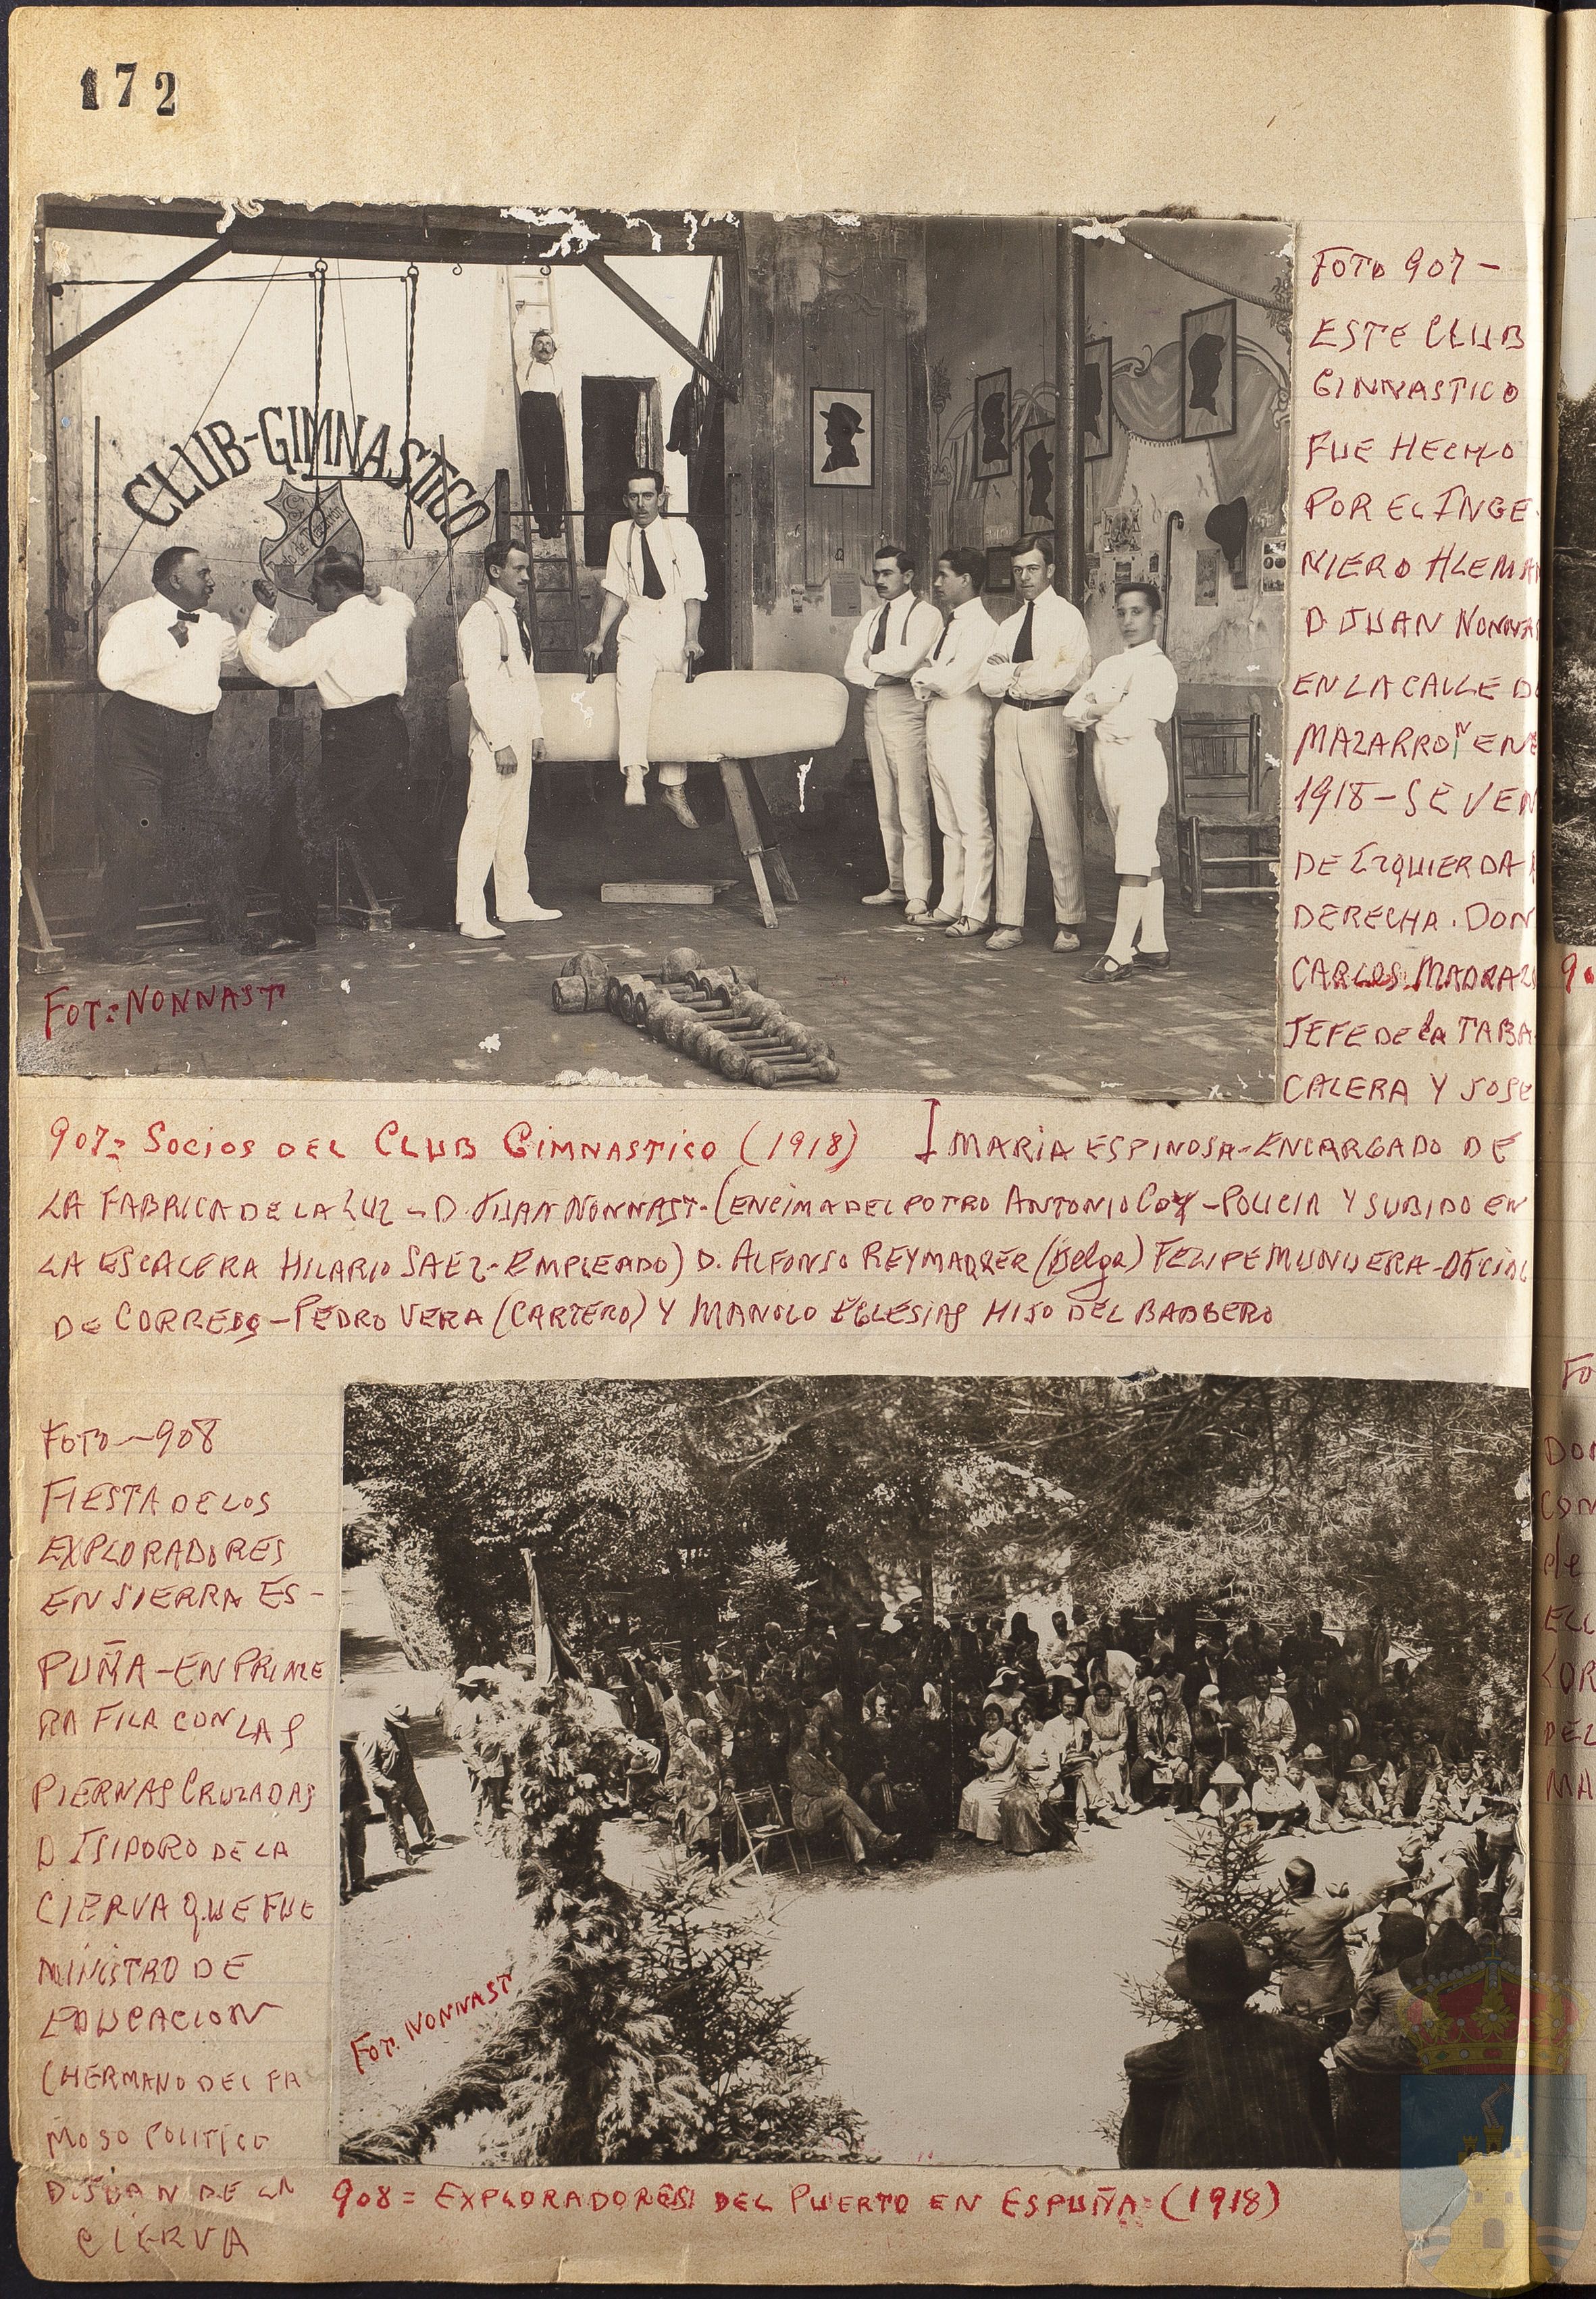 172
CLUB-GIMNASTICO
FOT: NONNAST
FOTO 907-
ESTE CLUB
GINNASTICO
FUE HECHO
POR EL INGE-
NIERO ALEMA
D. JUAN NONNAS
EN LA CALLE D
MAZARRON EN E
1918-SE VEN
DE IZQUIERDA A
DERECHA. DON
CARLOS MADRAZO
JEFE DE la TABA
CALERA Y JOSE
907= SOCIOS DEL CLUB GIMNASTICO (1918) MARIA ESPINOSA-ENCARGADO DE
LA FABRICA DE LA LUZ - D. JUAN NONNAST-(ENCIMA DEL POTRO ANTONIO COY-POLICIA Y SUBIDO EN
LA ESCALERA HILARIO SAEZ-EMPLEADO) D. ALFONSO REYMAQKER (Belga) FELIPE MUNUERA-OFICIAL
DE CORREOS-PEDRO VERA (CARTERO) Y MANOLO EGLESIAS HIJO DEL BARBERO
FOTO-908
FIESTA DE LOS
EXPLORADORES
EN SIERRA ES-
PUÑA-EN PRIME
RA FILA CON LAS
PIERNAS CRUZADAS
D ISIDORO DE LA
CIERVA QUE FUE
MINISTRO DE
EDUCACION
(HERMANO DEL FA
MOSO POLITICO
D. JUAN DE LA
CIERVA
FOT. NONNAST
908= EXPLORADORES DEL PUERTO EN ESPUÑA (1918)